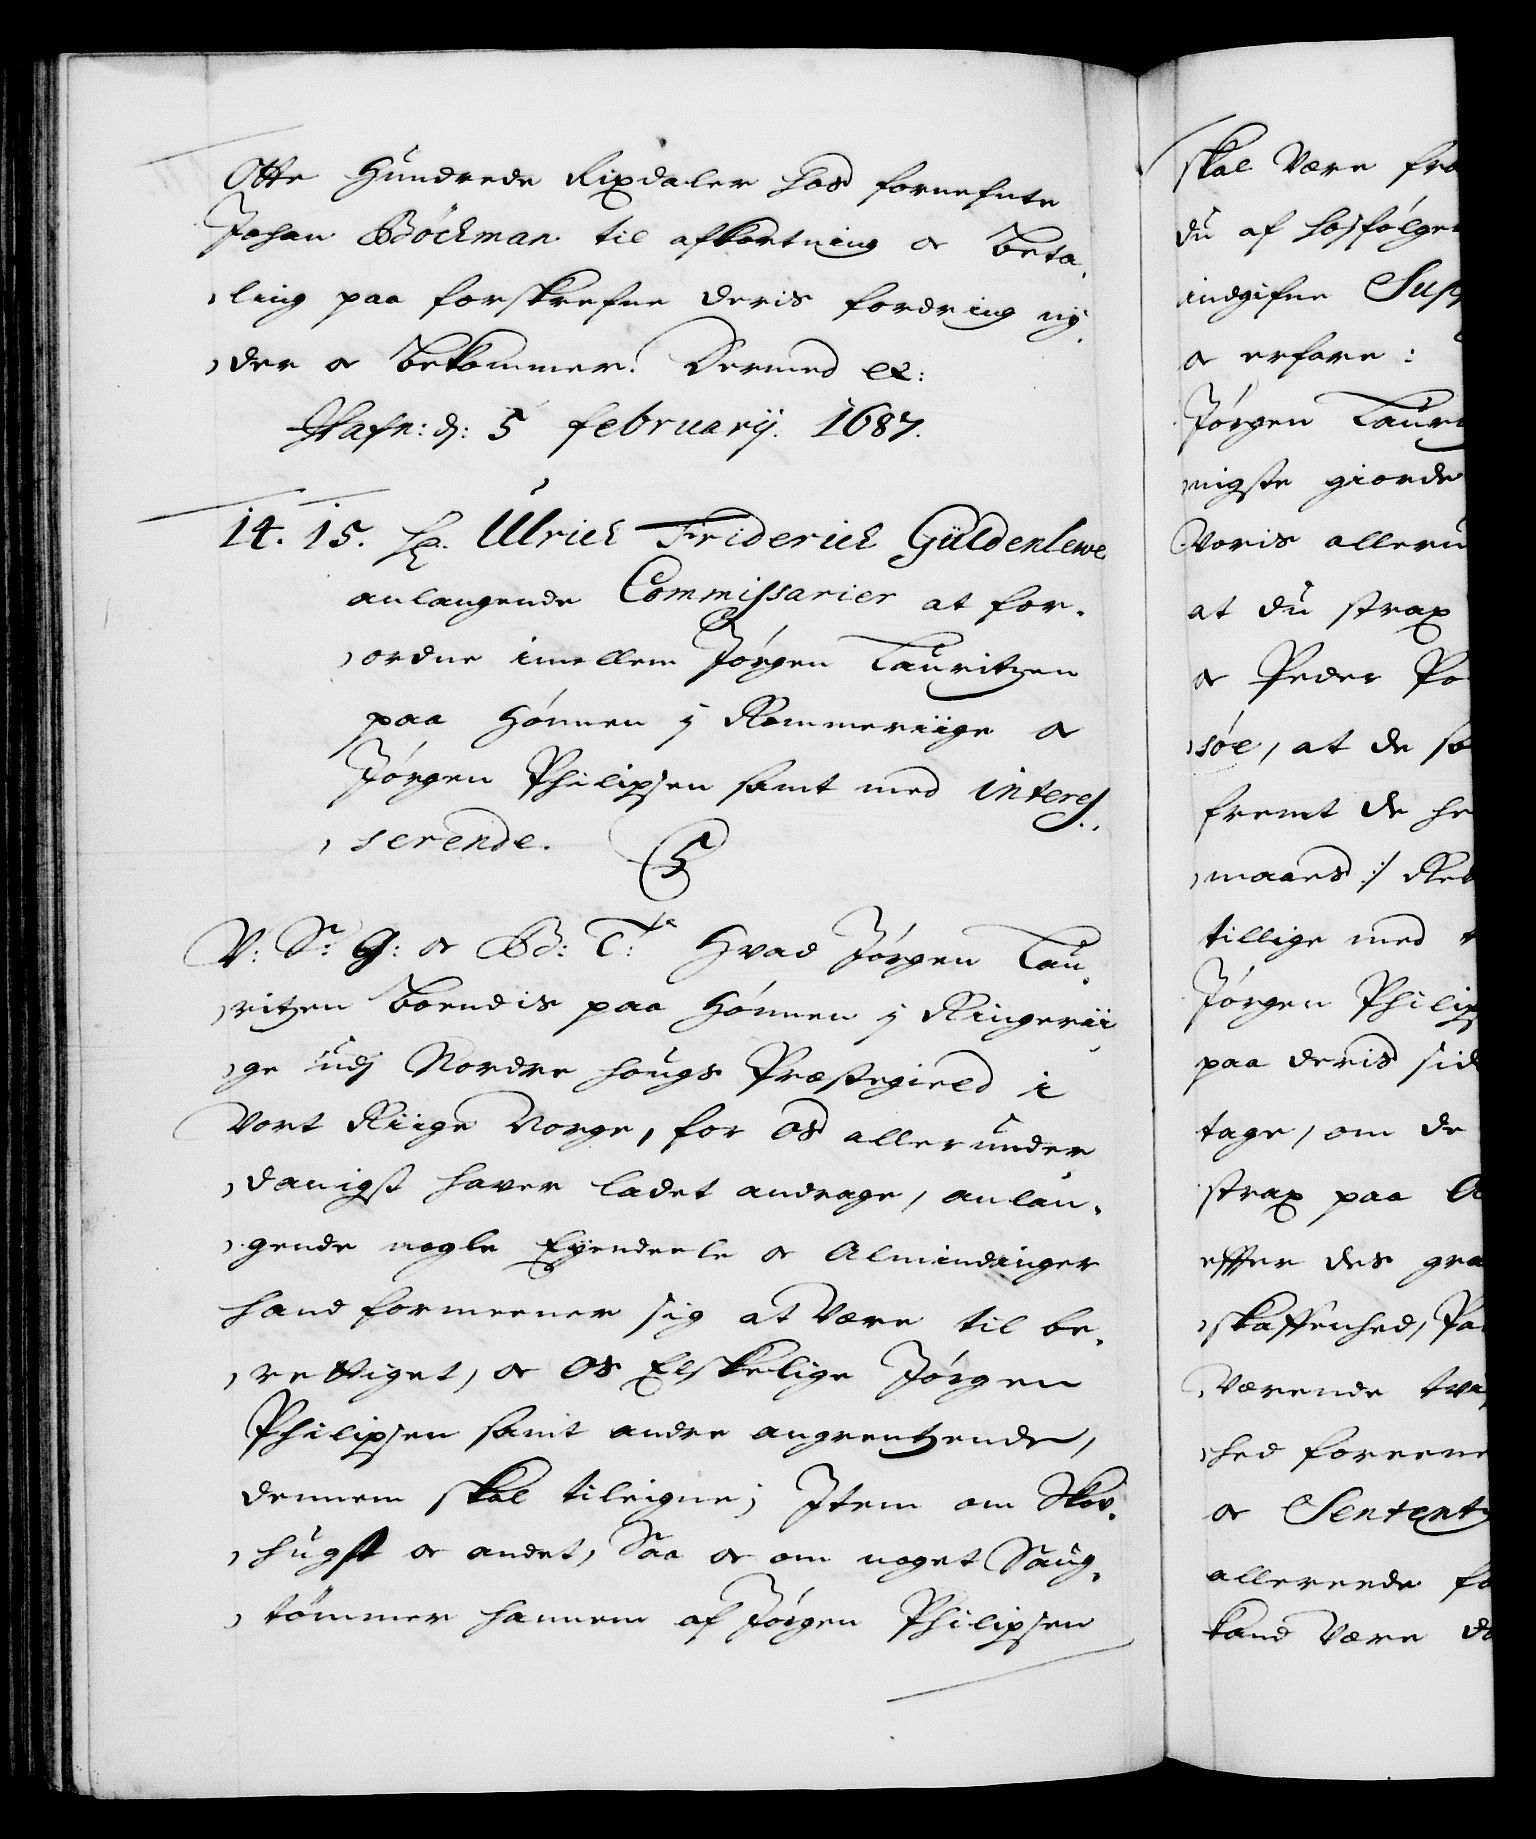 Otte Hundrede Rixdaler hos fornefnte
Johan Böckman til afkortning oc Beta,
,ling paa forskrefne deris fordring ny,
,der oc bekommer. Dermed etc:
Hafn: d: 5 february. 1687.
14. 15. Hr. Ulrich Friderich Gÿldenlewe
anlangende Commissarier at for,
,ordne imellem Jörgen Lauritzen
paa Hönnen j Rommeriige oc
Jörgen Philipsen samt med interes,
,serende.
C5
V: Sr: G: oc Bd: T: Hvad Jörgen Lau,
,ritzen boendis paa Hönnen j Ringerii,
,ge udj Nordre Hougs Præstegield i
Vort Riige Norge, for os allerunder,
,danigst haver ladet andrage, anlan,
,gende nogle Eyendeele oc Almindinger
hand formeener sig at være til be,
,rettiget, oc Os Elskelige Jörgen
Philipsen samt andre angrentzende,
dennem skal tileigne; Item om Skov,
,hugst oc andet, Saa oc om noget Saug,
,tömmer hannem af Jörgen Philipsen
skal være fra
du af hosfölgen
indgifne Sup
oc erfare:
Jörgen Laurit
,nigste giorde
Voris alleru
at du strax
oc Peder Po
,söe, at de sa
fremt de he
,maaes :/ Re
tillige med
Jörgen Philip
paa deris sid
tage, om de
strax paa A
effter des gra
,skaffenhed, Pa
Værende tvi
,hed foreene
oc Sententz
allerende fo
kand være d